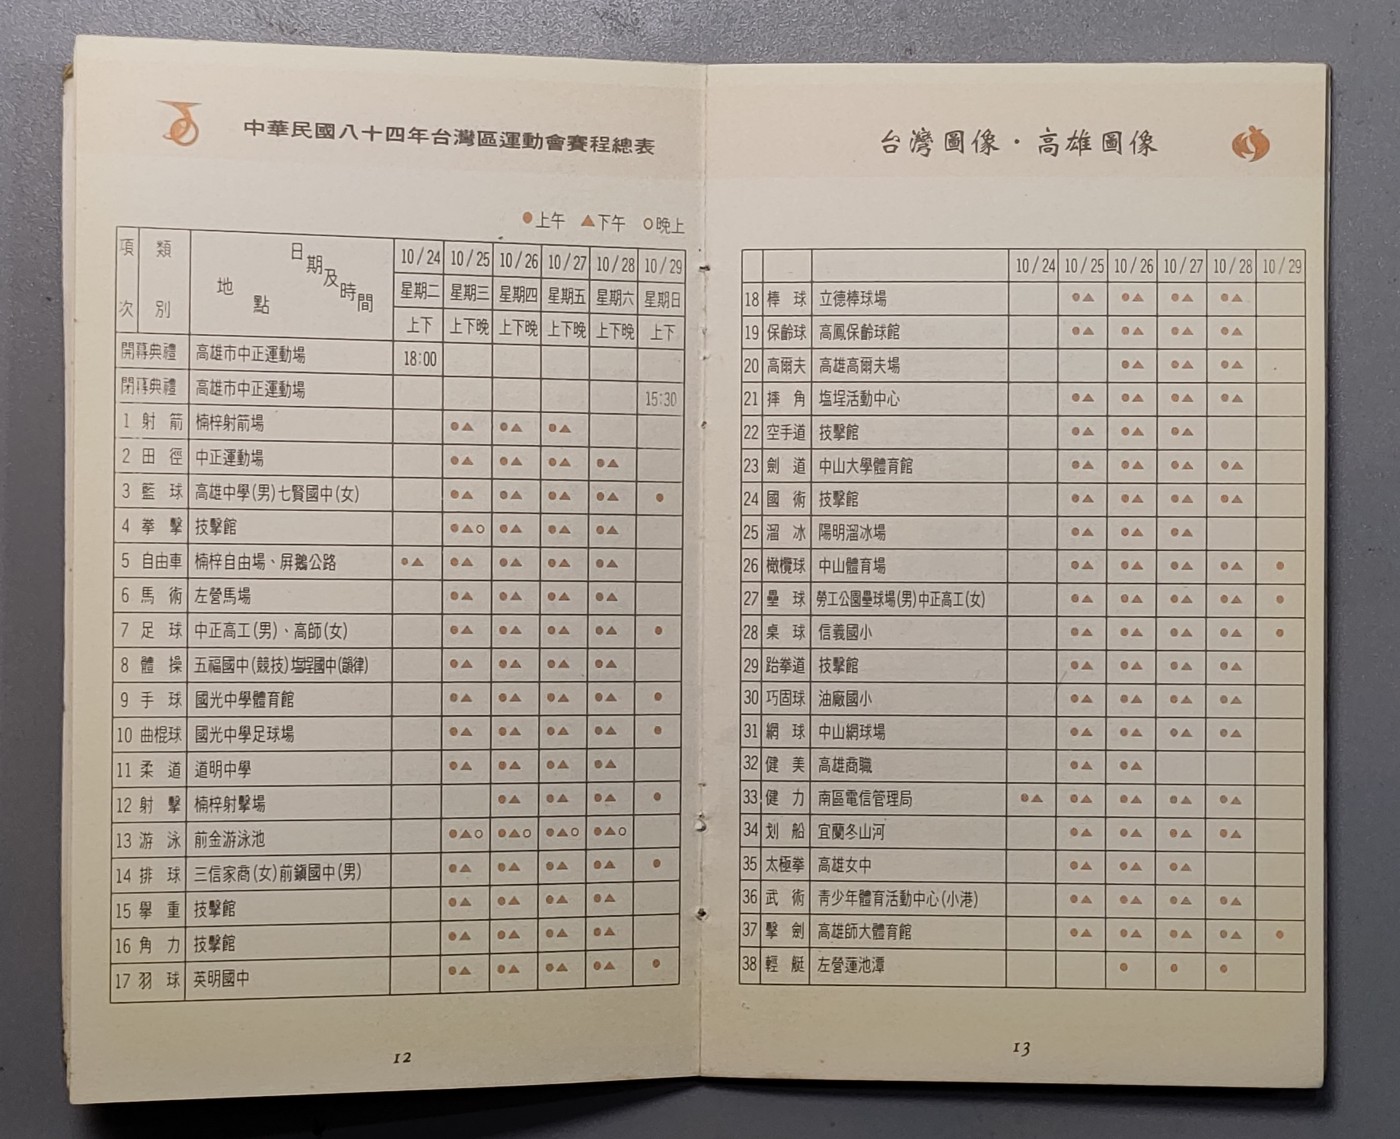 中華民國八十四年台灣區運動會賽程總表
●上午 ▲下午 ○晚上
項次 類別 地點 日期及時間 10/24 10/25 10/26 10/27 10/28 10/29
星期二 星期三 星期四 星期五 星期六 星期日
上下 上下晚 上下晚 上下晚 上下晚 上下
開幕典禮 高雄市中正運動場 18:00
閉幕典禮 高雄市中正運動場 15:30
1 射箭 楠梓射箭場 ●▲ ●▲ ●▲
2 田徑 中正運動場 ●▲ ●▲ ●▲ ●▲
3 籃球 高雄中學(男)七賢國中(女) ●▲ ●▲ ●▲ ●▲ ●
4 拳擊 技擊館 ●▲○ ●▲ ●▲ ●▲
5 自由車 楠梓自由場、屛鵝公路 ●▲ ●▲ ●▲ ●▲ ●▲
6 馬術 左營馬場 ●▲ ●▲ ●▲ ●▲
7 足球 中正高工(男)、高師(女) ●▲ ●▲ ●▲ ●▲ ●
8 體操 五福國中(競技)塩埕國中(韻律) ●▲ ●▲ ●▲ ●▲
9 手球 國光中學體育館 ●▲ ●▲ ●▲ ●▲ ●
10 曲棍球 國光中學足球場 ●▲ ●▲ ●▲ ●▲ ●
11 柔道 道明中學 ●▲ ●▲ ●▲ ●▲
12 射擊 楠梓射擊場 ●▲ ●▲ ●▲ ●
13 游泳 前金游泳池 ●▲○ ●▲○ ●▲○ ●▲○
14 排球 三信家商(女)前鎭國中(男) ●▲ ●▲ ●▲ ●▲ ●
15 舉重 技擊館 ●▲ ●▲ ●▲ ●▲
16 角力 技擊館 ●▲ ●▲ ●▲ ●▲
17 羽球 英明國中 ●▲ ●▲ ●▲ ●▲ ●
12
台灣圖像・高雄圖像
10/24 10/25 10/26 10/27 10/28 10/29
18 棒球 立德棒球場 ●▲ ●▲ ●▲ ●▲
19 保齡球 高鳳保齡球館 ●▲ ●▲ ●▲ ●▲
20 高爾夫 高雄高爾夫場 ●▲ ●▲ ●▲
21 摔角 塩埕活動中心 ●▲ ●▲ ●▲ ●▲
22 空手道 技擊館 ●▲ ●▲ ●▲
23 劍道 中山大學體育館 ●▲ ●▲ ●▲ ●▲
24 國術 技擊館 ●▲ ●▲ ●▲ ●▲
25 溜冰 陽明溜冰場 ●▲ ●▲ ●▲
26 橄欖球 中山體育場 ●▲ ●▲ ●▲ ●▲ ●
27 壘球 勞工公園壘球場(男)中正高工(女) ●▲ ●▲ ●▲ ●▲ ●
28 桌球 信義國小 ●▲ ●▲ ●▲ ●▲ ●
29 跆拳道 技擊館 ●▲ ●▲ ●▲ ●▲
30 巧固球 油廠國小 ●▲ ●▲ ●▲ ●▲
31 網球 中山網球場 ●▲ ●▲ ●▲ ●▲
32 健美 高雄商職 ●▲ ●▲
33 健力 南區電信管理局 ●▲ ●▲ ●▲ ●▲ ●▲
34 划船 宜蘭冬山河 ●▲ ●▲ ●▲ ●▲
35 太極拳 高雄女中 ●▲ ●▲ ●▲
36 武術 靑少年體育活動中心(小港) ●▲ ●▲ ●▲ ●▲
37 擊劍 高雄師大體育館 ●▲ ●▲ ●▲ ●▲ ●
38 輕艇 左營蓮池潭 ● ● ●
13